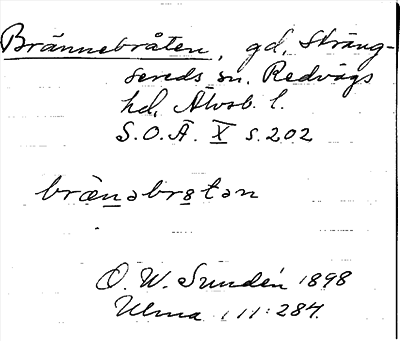 Brännebråten, gd, Sträng-
sereds sn. Redvägs
hd, Älvsb. l.
S.O.Ä. X s. 202
brænəbrɵtən
O. W. Sundén 1898
Ulma 111:284.